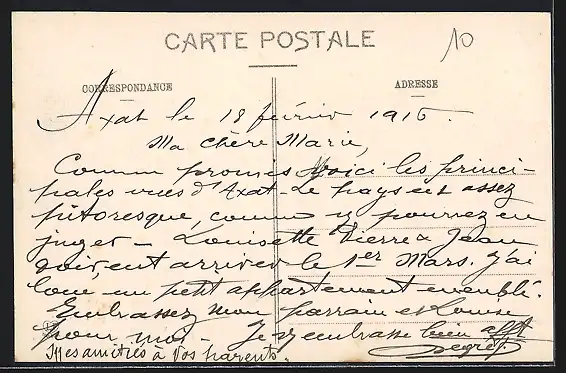 10
CARTE POSTALE
CORRESPONDANCE
ADRESSE
Axat le 18 février 1916.
Ma chère Marie,
Comme promis voici les princi-
pales vues d'Axat - Le pays est assez
pittoresque, comme pourrez en
juger - Louisette Pierre & Jean
doivent arriver le 1er Mars. J'ai
loué un petit appartement meublé.
Embrassez mon parrain et Louise
pour moi - Je vs embrasse bien afft
Mes amitiés à Vos parents.